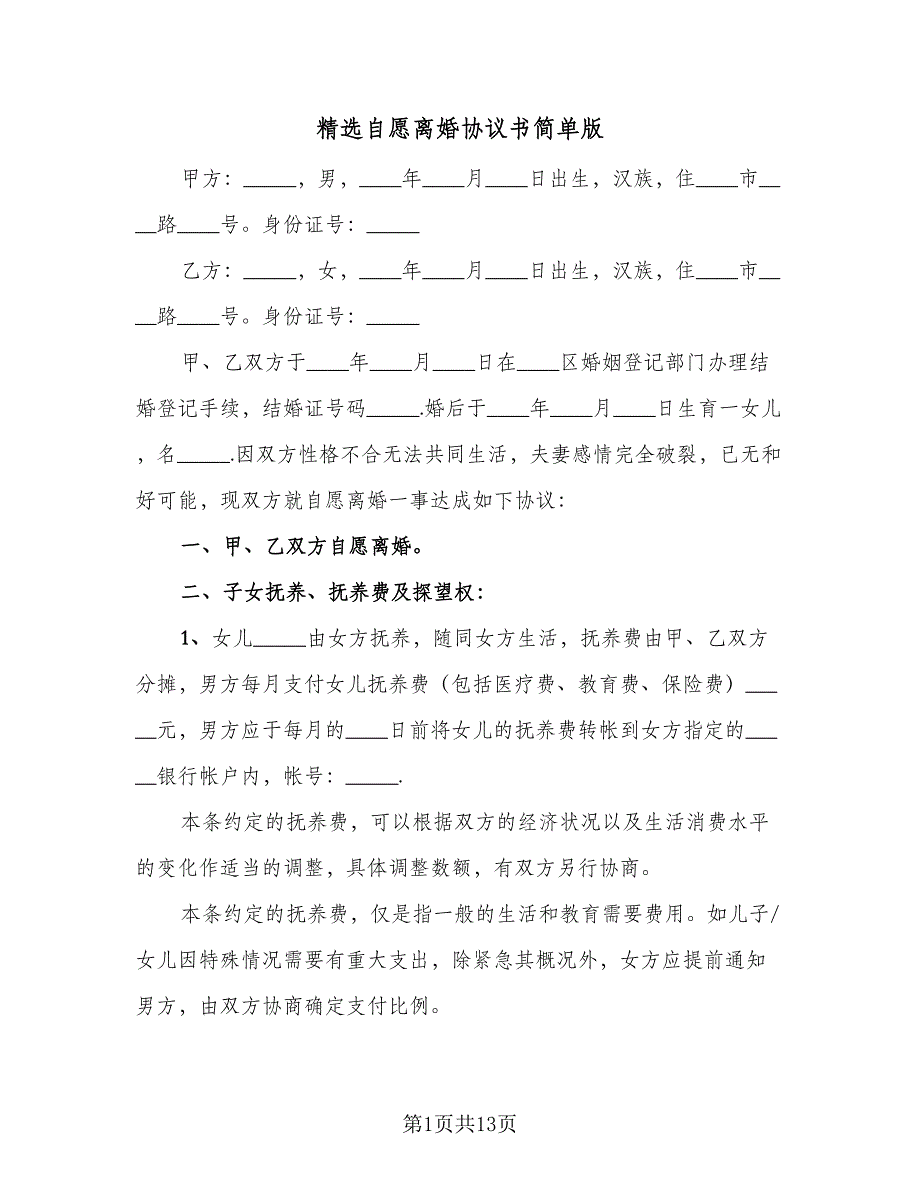 精选自愿离婚协议书简单版
甲方：_____，男，____年____月____日出生，汉族，住____市__
__路____号。身份证号：_____
乙方：_____，女，____年____月____日出生，汉族，住____市__
__路____号。身份证号：_____
甲、乙双方于____年____月____日在____区婚姻登记部门办理结
婚登记手续，结婚证号码_____.婚后于____年____月____日生育一女儿
，名_____.因双方性格不合无法共同生活，夫妻感情完全破裂，已无和
好可能，现双方就自愿离婚一事达成如下协议：
一、甲、乙双方自愿离婚。
二、子女抚养、抚养费及探望权：
1、女儿_____由女方抚养，随同女方生活，抚养费由甲、乙双方
分摊，男方每月支付女儿抚养费（包括医疗费、教育费、保险费）___
__元，男方应于每月的____日前将女儿的抚养费转帐到女方指定的___
__银行帐户内，帐号：_____.
本条约定的抚养费，可以根据双方的经济状况以及生活消费水平
的变化作适当的调整，具体调整数额，有双方另行协商。
本条约定的抚养费，仅是指一般的生活和教育需要费用。如儿子/
女儿因特殊情况需要有重大支出，除紧急其概况外，女方应提前通知
男方，由双方协商确定支付比例。
第1页共13页